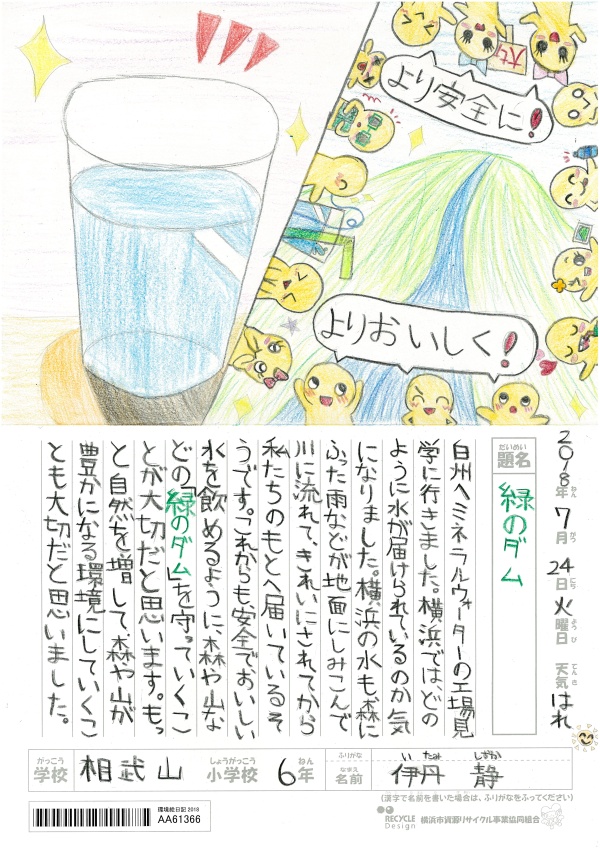 より安全に!
よりおいしく!
2018年 7月 24日 火曜日 天気 はれ
ねん がつ にち ようび てんき
だいめい
題名 緑のダム
白州へミネラルウォーターの工場見
学に行きました。横浜では、どの
ように水が届けられているのか気
になりました。横浜の水も、森に
ふった雨などが地面にしみこんで
川に流れて、きれいにされてから
私たちのもとへ届いているそ
うです。これからも、安全でおいしい
水を飲めるように、森や山な
どの「緑のダム」を守っていくこ
とが大切だと思います。もっ
と自然を増して、森や山が
豊かになる環境にしていくこ
とも大切だと思いました。
がっこう しょうがっこう ねん ふりがな いたみ しずか
学校 相武山 小学校 6年 なまえ 名前 伊丹 静
(漢字で名前を書いた場合は、ふりがなをふってください)
環境絵日記 2018
AA61366
RECYCLE Design 横浜市資源リサイクル事業協同組合